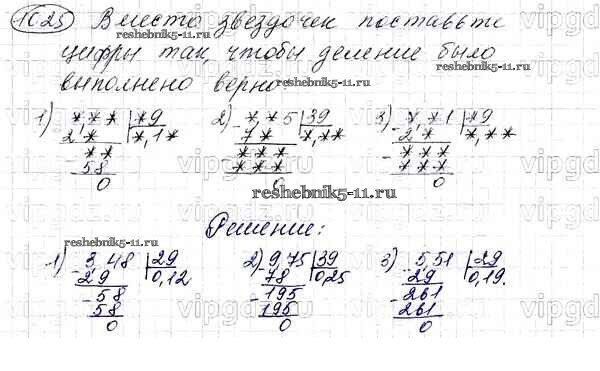 1025 Вместо звездочек поставьте
reshebnik5-11.ru
цифры так, чтобы деление было
reshebnik5-11.ru
выполнено верно
1) *,** | *9 2) *,*5 | 39 3) *,*1 | *9
- 2* *,1* - 7* *,** - 2* *,**
- ** - *** - ***
58 *** ***
0 0 0
reshebnik5-11.ru
Решение:
reshebnik5-11.ru
1) 3,48 | 29 2) 9,75 | 39 3) 5,51 | 29
- 29 0,12 - 78 0,25 - 29 0,19.
- 58 - 195 - 261
58 195 261
0 0 0